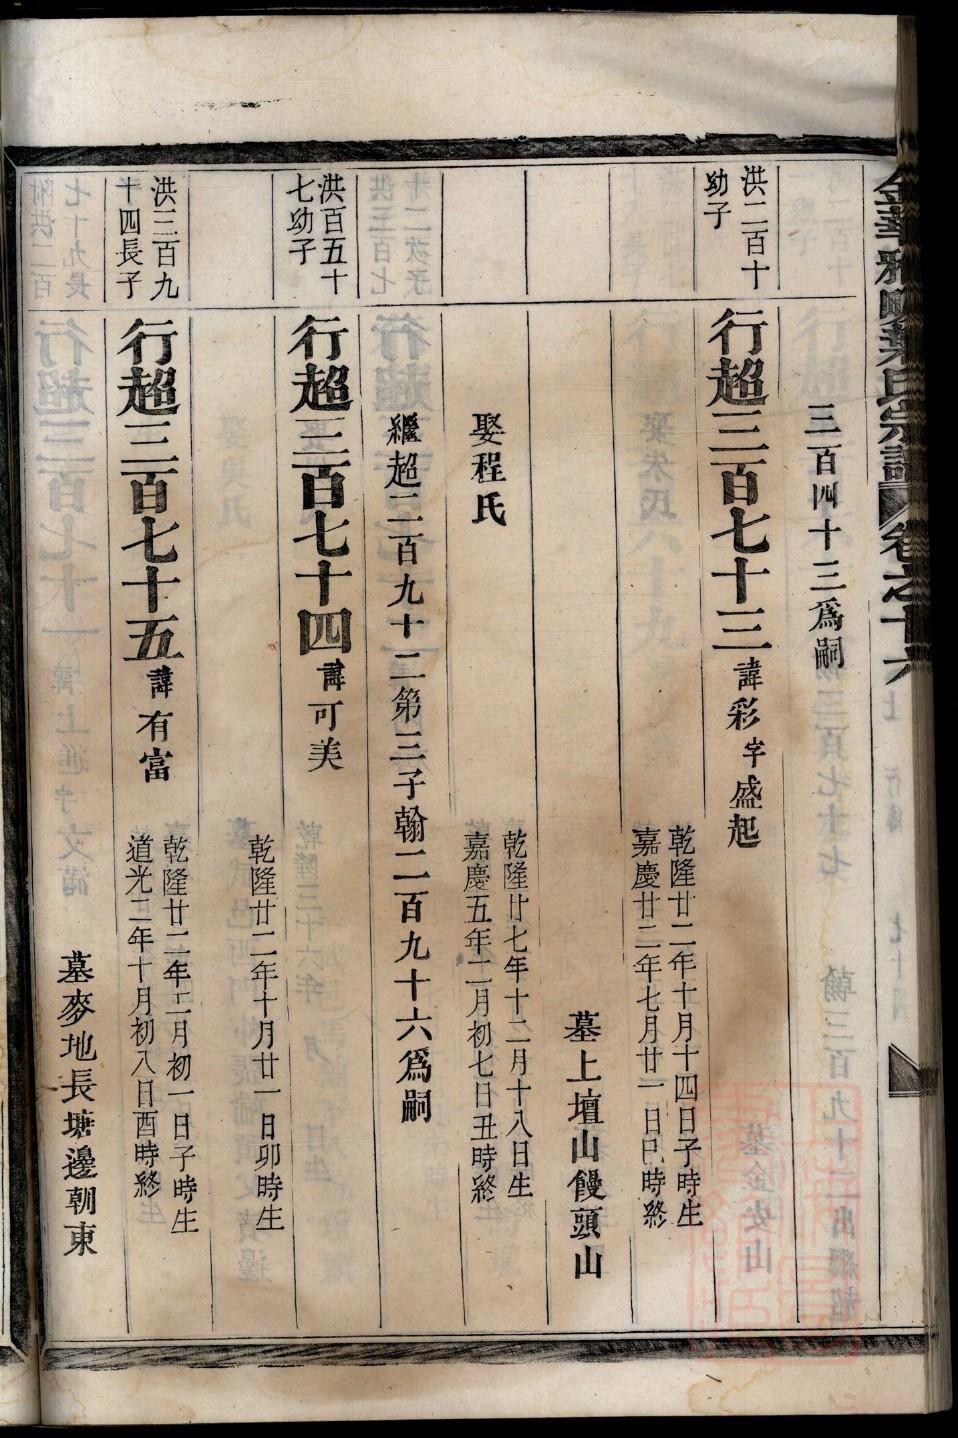 三百四十三爲嗣
洪二百十
幼子
行超三百七十三諱彩字盛起
乾隆廿二年十月十四日子時生
嘉慶廿二年七月廿一日巳時終
墓上壇山饅頭山
娶程氏
乾隆廿七年十二月十八日生
嘉慶五年二月初七日丑時終
繼超二百九十二第三子翰二百九十六爲嗣
洪百五十
七幼子
行超三百七十四諱可美
乾隆廿二年十月廿一日卯時生
洪三百九
十四長子
行超三百七十五諱有富
乾隆廿二年二月初一日子時生
道光二年十月初八日酉時終
墓麥地長塘邊朝東